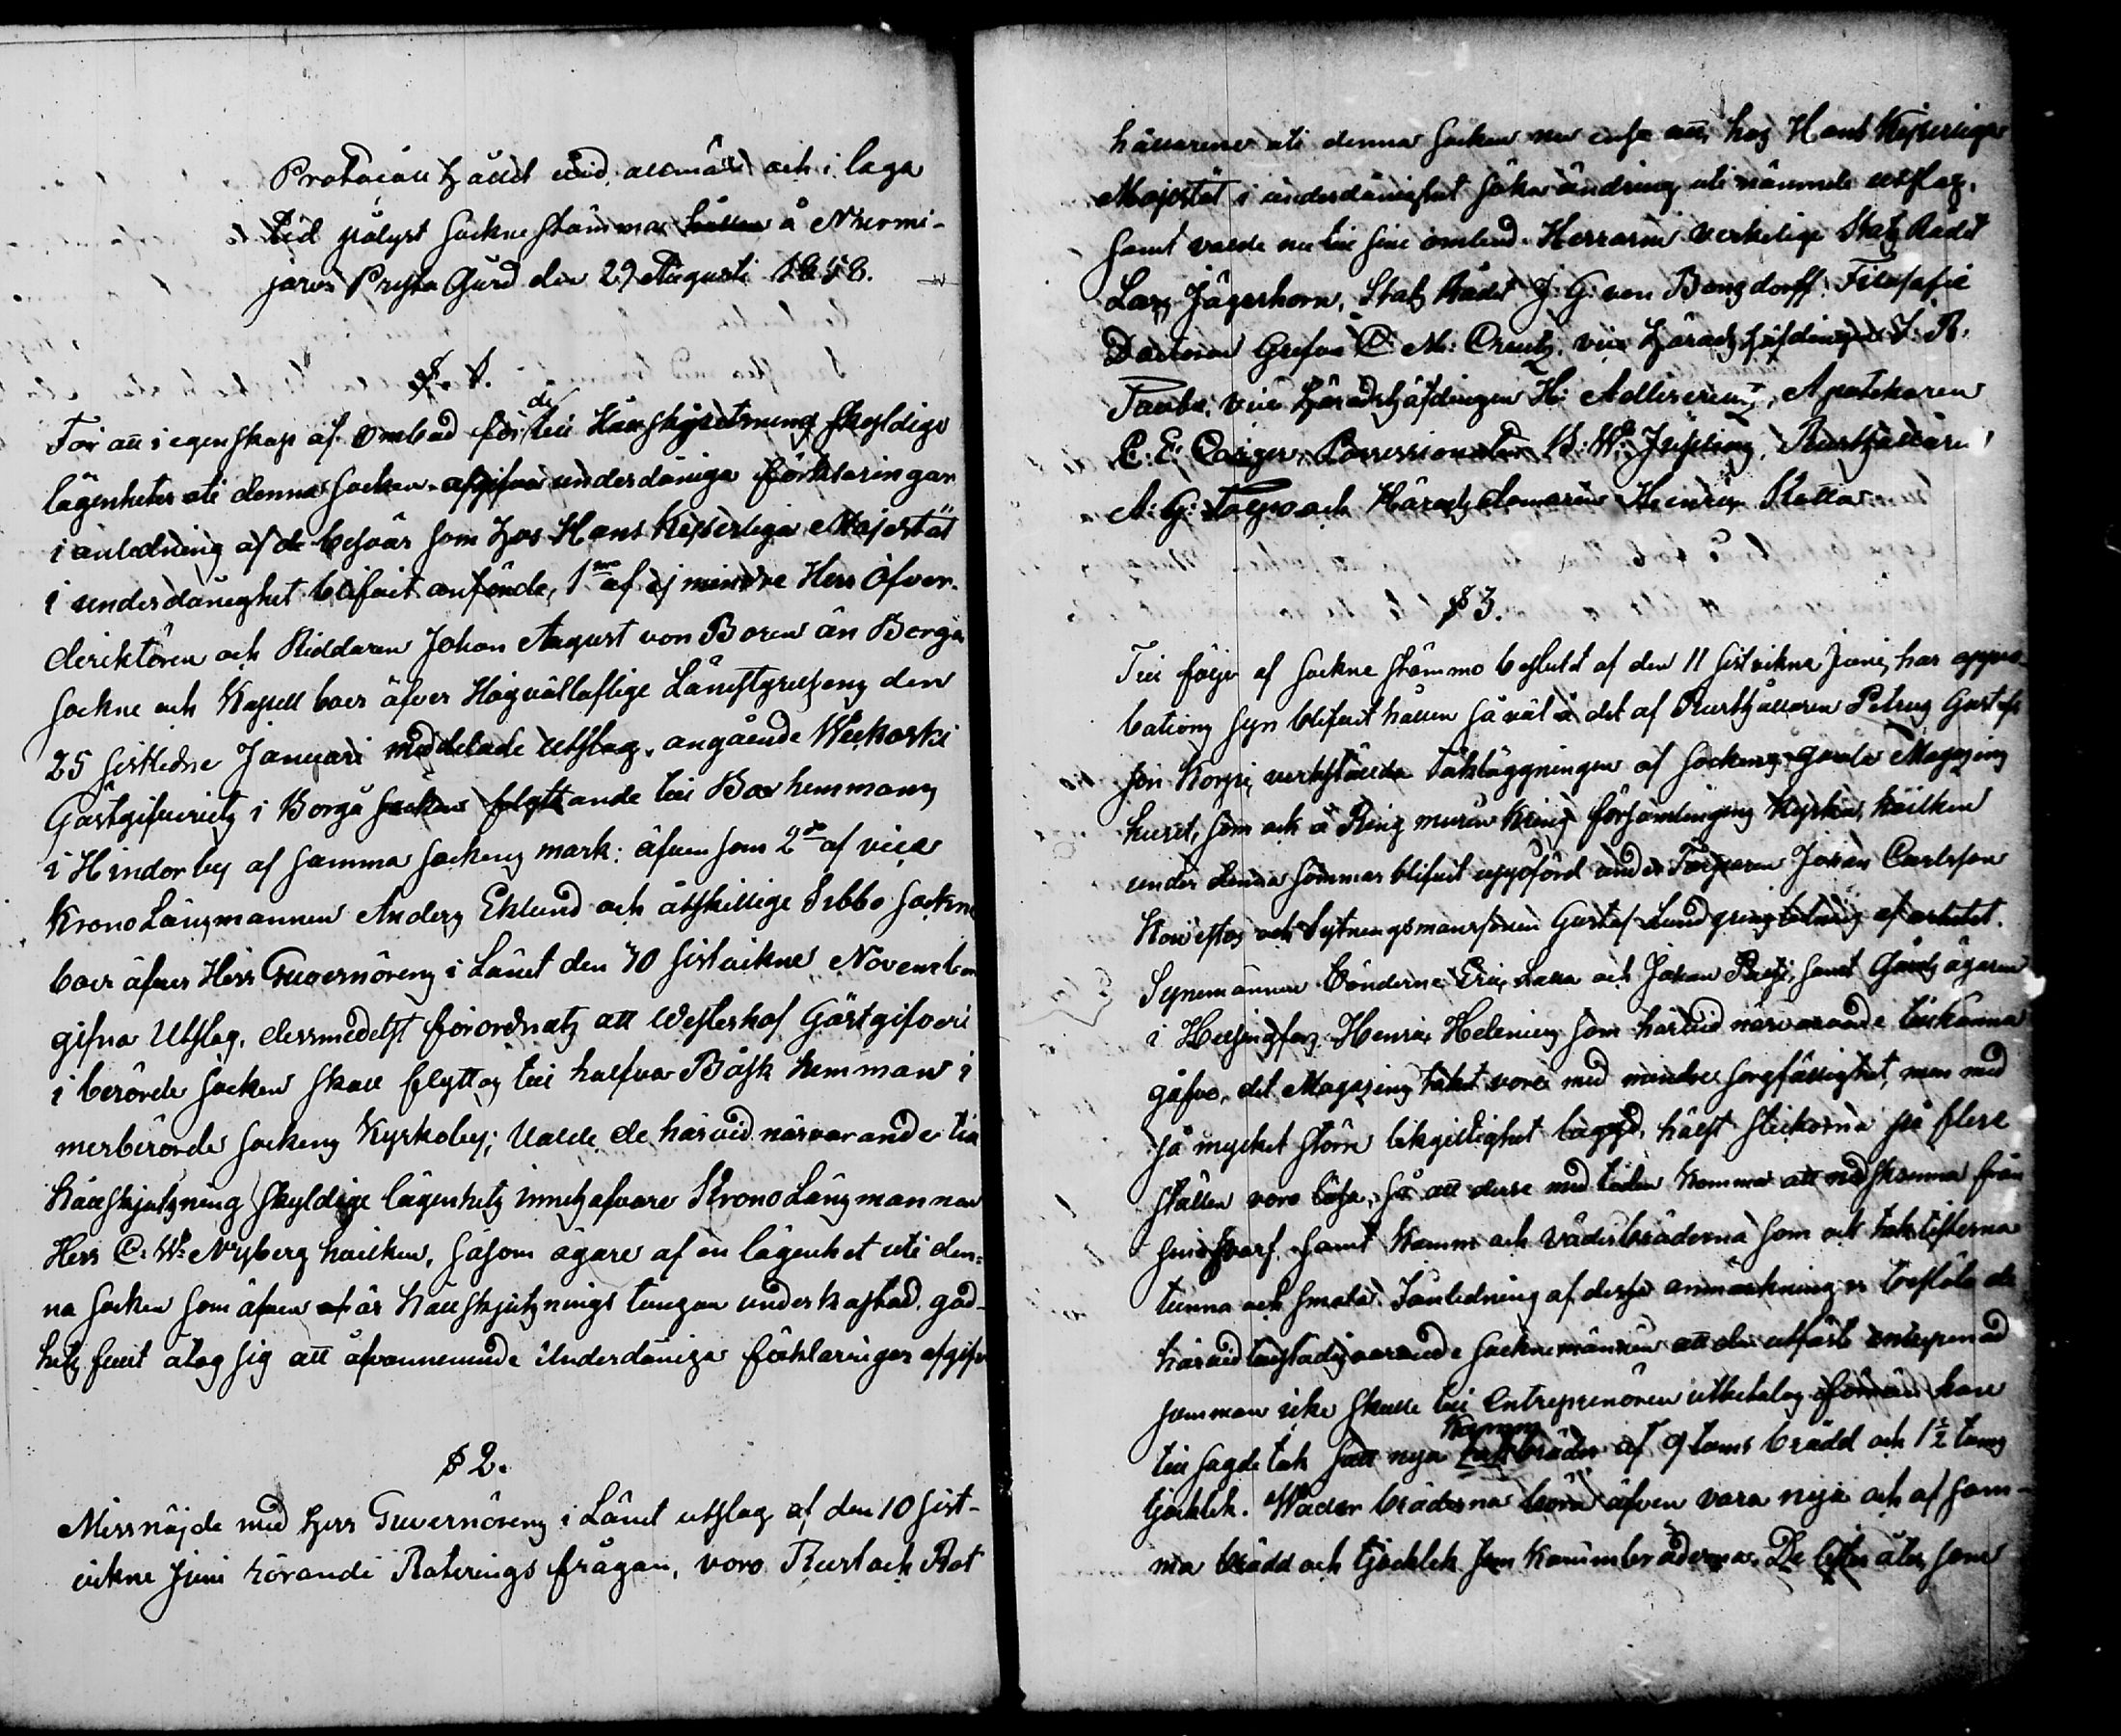 Protocoll hållit wid allmän och i laga
tid pålyst Sockne stämma hållen å Nurmi-
järvi Presta Gård den 29 Augusti 1858.
§. 1.
För att i egenskap af Ombud för de till Hållskjutsning skyldige
lägenheter uti denna Socken afgifva underdåniga förklaringar
i anledning af de besvär som hos Hans Kejserliga Majestät
i underdånighet blifvit anförde, 1mo af ej mindre Herr Öfver-
direktören och Riddaren Johan August von Boren än Borgå
Sockne och Kapell boer öfver Högvälloflige Länestyrelsens den
25 sistledne Januari meddelade Utslag, angående Weckoski
Gästgifveriets i Borgå Socken flyttande till Box hemmans
i Hindorby af samma Sockens mark; äfven som 2do af vice
Krono Länsmannen Anders Eklund och åtskillige Sibbo Sockne
boer öfver Herr Guvernörens i Länet den 30 sistvikne November
gifna Utslag, dessmedelst förordnats att Westerkof Gästgifveri
i berörde Socken skall flyttas till halfva Båsk hemman i
merberörde Sockens Kyrkoby; Valde de härvid närvarande till
hållskjutsning skyldige lägenhets innehafvare Krono Länsmannen
Herr C. W. Nyberg hvilken, såsom ägare af en lägenhet uti den-
na Socken som äfven af är hållskjutsnings tungan underkastad, god-
hets fullt åtog sig att åfvannemnde Underdåniga förklaringar afgifva
§ 2.
Missnöjde med Herr Guvernörens i Länet utslag af den 10 sist-
vikne Juni rörande Roterings frågan, voro Rust och Rot
hållarene uti denna Socken nu ense att, hos Hans Kejserliga
Majestät i underdånighet söka ändring uti nämnde utslag,
samt valde nu till sine ombud Herrarne Verkelige Stats Rådet
Lars Jägerhorn, Stats Rådet J. G. von Bonsdorff, Filosofie
Doctorn Grefve C. M. Creutz, vice Häradshöfdingen J. R.
Taube, vice Häradshöfdingen H. Adlercreutz, Apotekaren
C. E. Possessionaten B. W. Rusthållaren
A. G. och Härads Domaren Henric Kolla
§ 3.
Till följe af Sockne stämmo beslutet af den 11 sistvikne Juni, har appro-
bations syn blifvit hållen så väl å det af Rusthållaren Petrus Gustafs
son Korpi verkställda takläggningen af Sockens gamla Magazins
huset, som och å Ring muren kring församlingens kyrka, hvilken
under denna sommar blifvit uppförd under Torparen Johan Carlsson
och Sytningsmanssonen Gustaf ledning af arbetet.
Synemännen Bönderne Eric Lalla och Johan samt Gårds ägaren
i Helsingfors Henric Helenius som härvid närvarande tillkänna
gåfvo, det Magazins taket vore med mindre sorgfällighet, men med
så mycket större likgiltighet lagdt, hälst stickorna på flere
ställen voro lösa, så att desse med tiden komma att nedskanna från
sin hvarf, samt Kamm och väderbräderna som och takläkterna
tunna och smala. I anledning af dessa anmärkningar beslöto de
härvid tillstädesvarande Socknemännen att den utfäste entreprenad
summan icke skulle till Entreprenören utbetalas förrän han
till sagde tak satt nya Kamm bräder af 9 tums brädd och 1½ tums
tjocklek. Wäder bräderna böra äfven vara nya och af sam-
ma brädd och tjocklek som Kammbräderna. De läkter åter, som